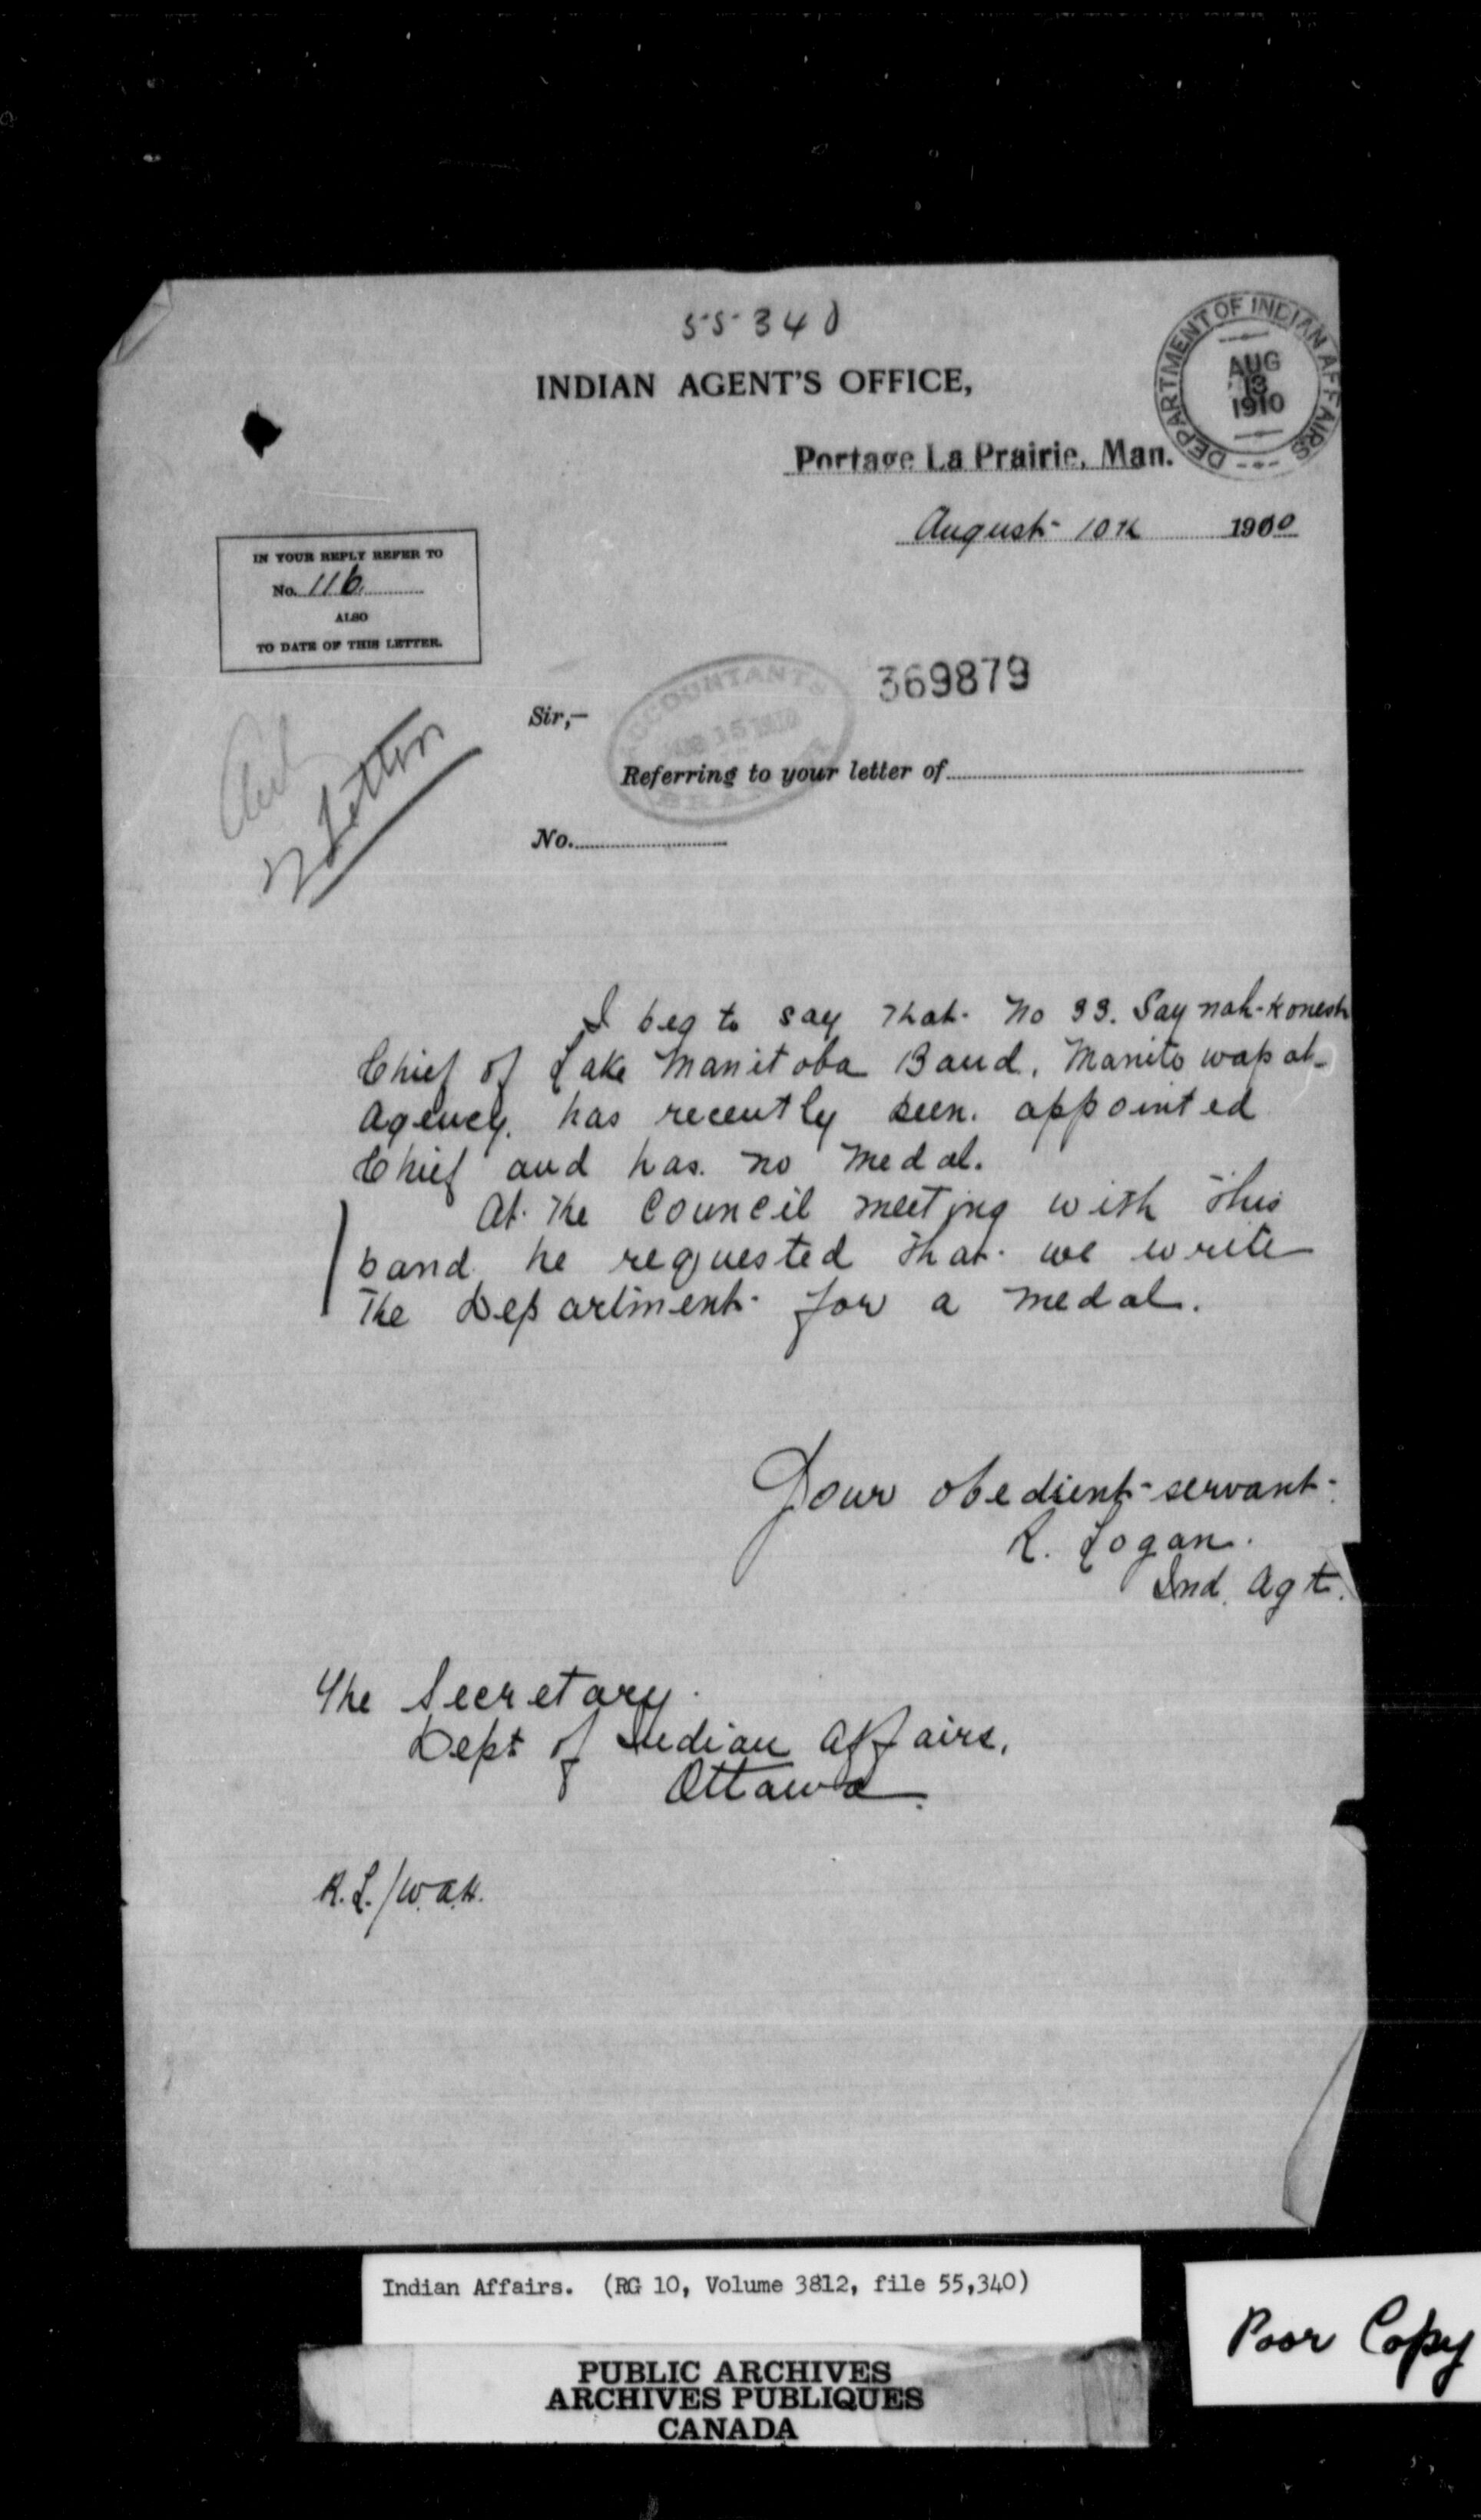 55340
INDIAN AGENT'S OFFICE,
DEPARTMENT OF INDIAN AFFAIRS
AUG
13
1910
Portage La Prairie, Man.
August 10th 1900
IN YOUR REPLY REFER TO
No. 116
ALSO
TO DATE OF THIS LETTER.
369879
Sir,—
ACCOUNTANTS
15 1910
BRANCH
Referring to your letter of
No.
I beg to say that No 33. Say nah-konesh
Chief of Lake Manitoba Band, Manitowapah
Agency. has recently been appointed
Chief and has no medal.
At the Council meeting with this
band he requested that we write
The Department for a medal.
Your obedient servant
R. Logan.
Ind. Agt.
The Secretary.
Dept of Indian Affairs,
Ottawa
R.L./W.A.H.
Indian Affairs. (RG 10, Volume 3812, file 55,340)
Poor Copy
PUBLIC ARCHIVES
ARCHIVES PUBLIQUES
CANADA